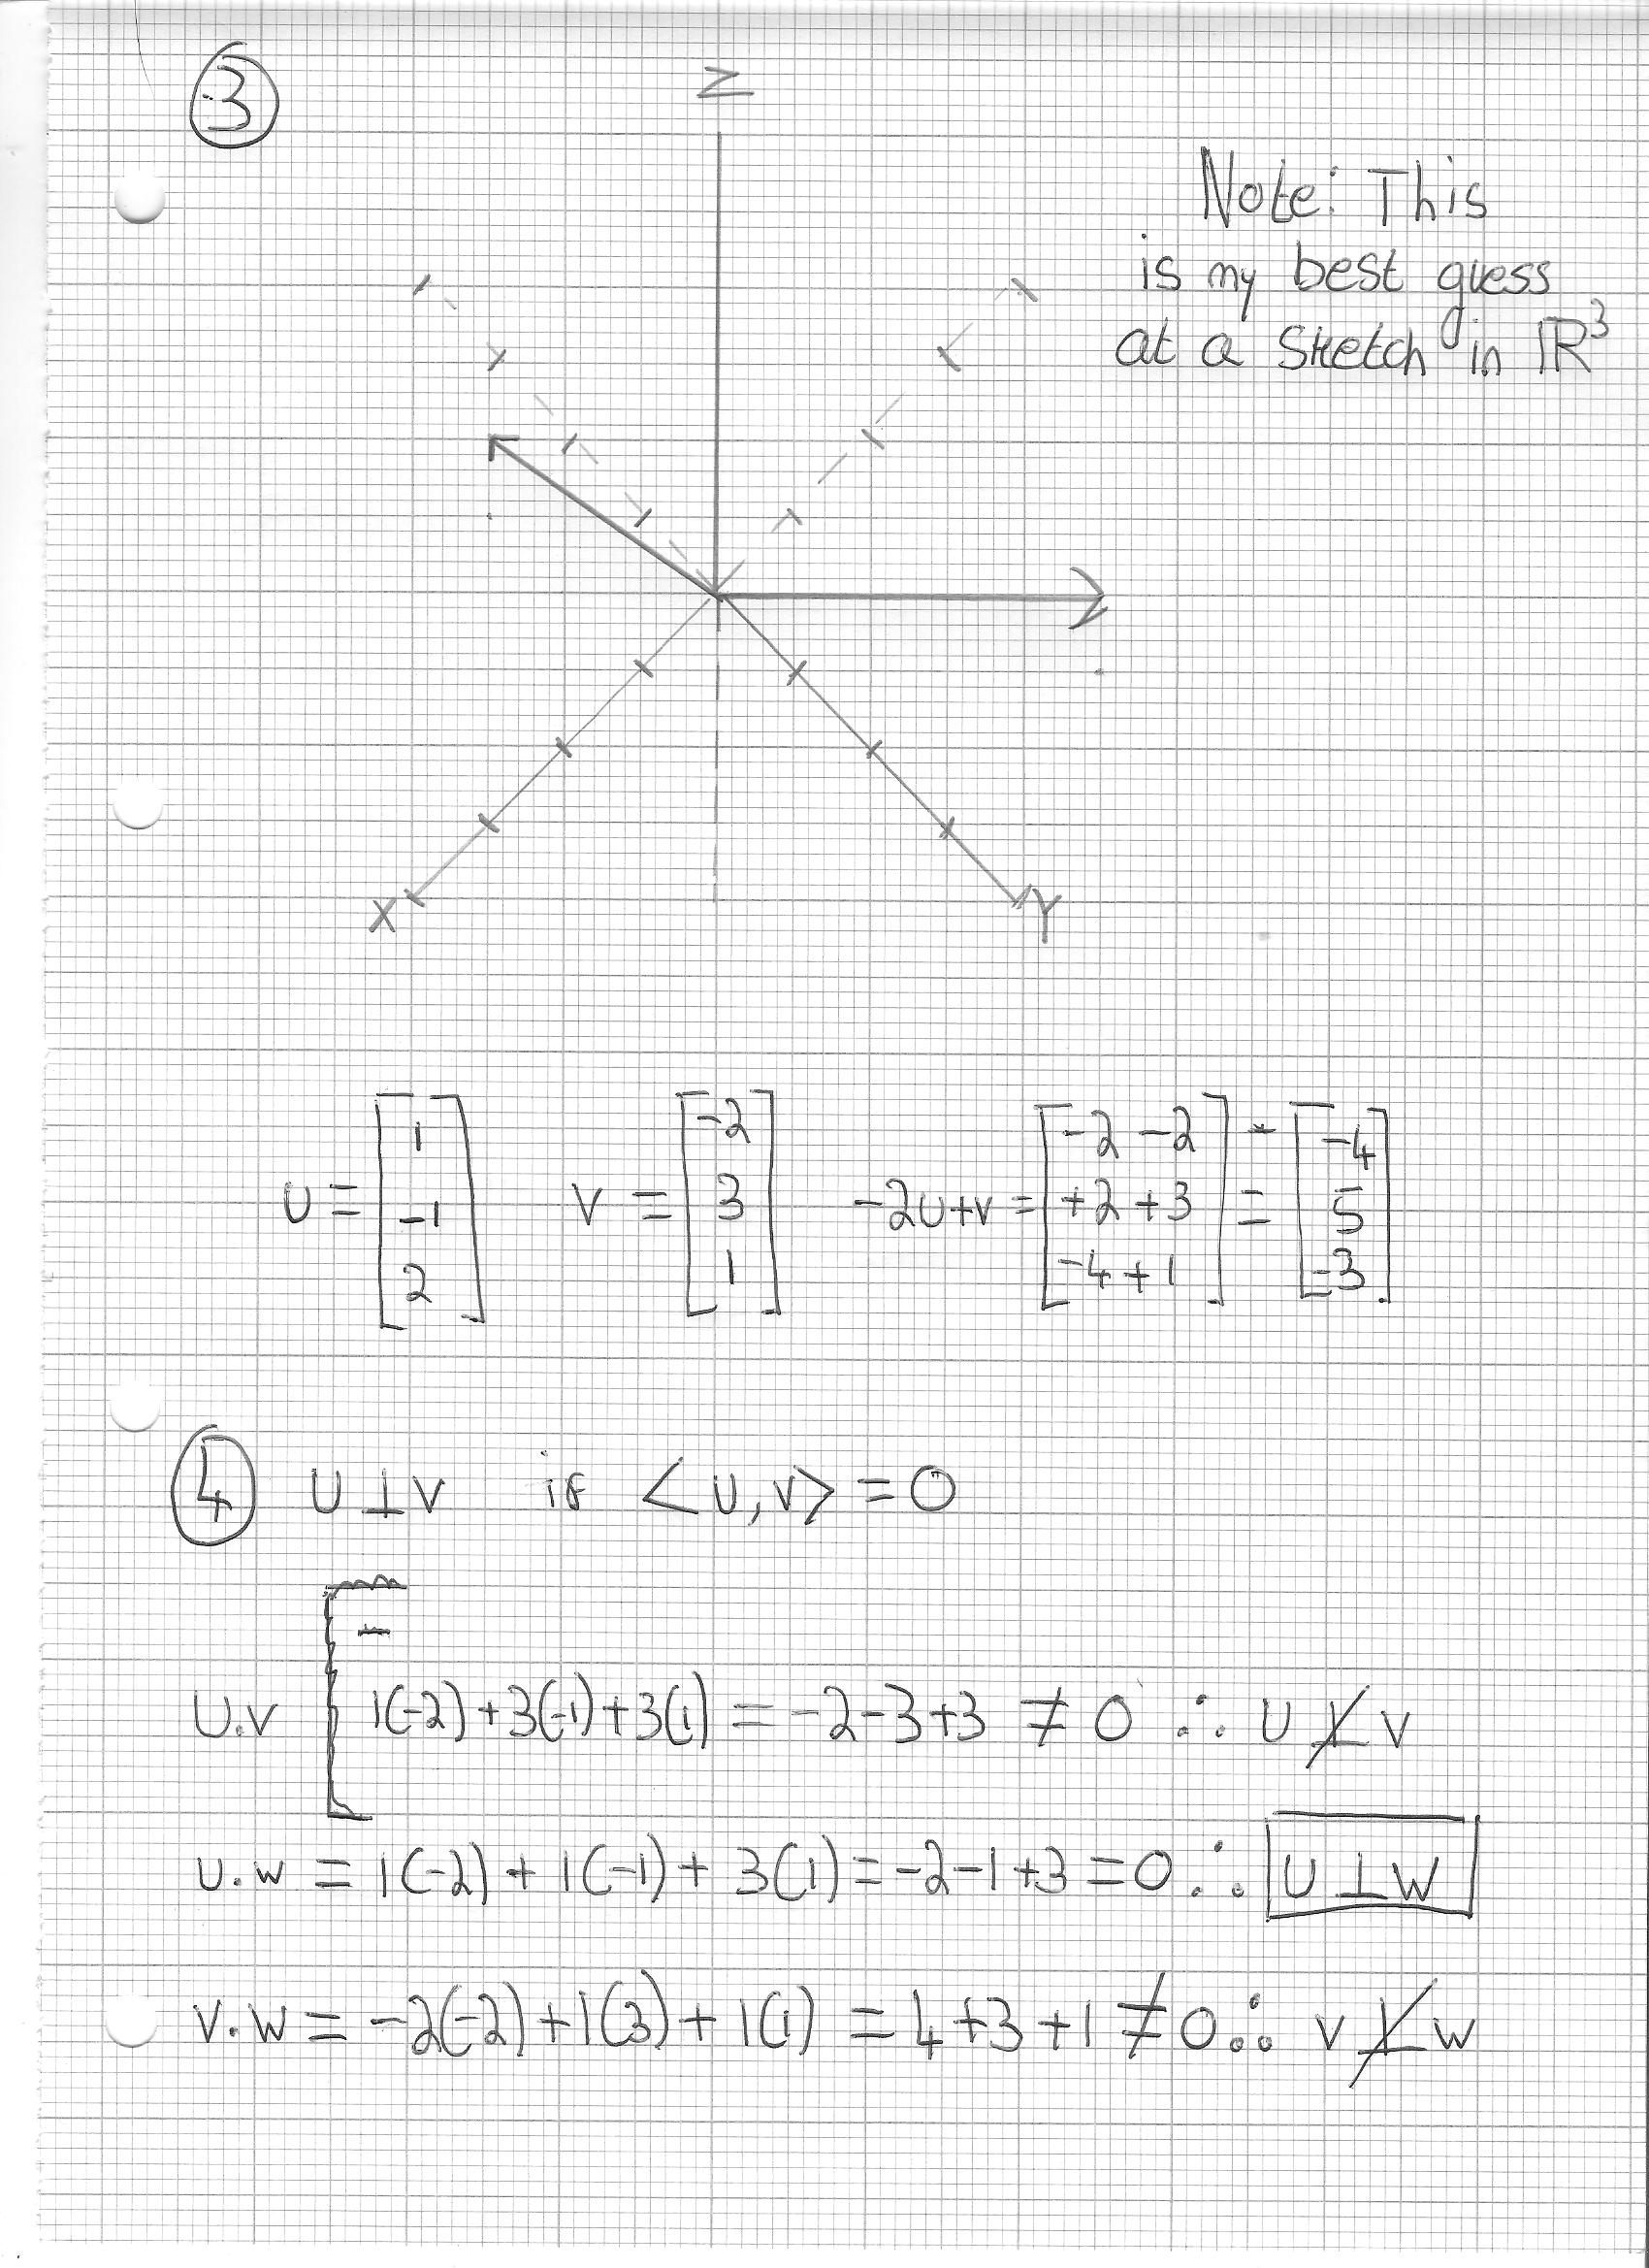 3
Z
Note: This
is my best guess
at a Sketch in ℝ³
X
Y
U = [1 -1 2] V = [-2 3 1] -2U+V = [-2 -2 +2 +3 -4 +1] = [-4 5 -3]
4 U ⊥ V if <U, V> = 0
U.V [1(-2)+3(-1)+3(1) = -2-3+3 ≠ 0 ∴ U ⊥̸ V
U.W = 1(-2) + 1(-1) + 3(1) = -2-1+3 = 0 ∴ U ⊥ W
V.W = -2(-2) + 1(3) + 1(1) = 4+3+1 ≠ 0 ∴ V ⊥̸ W